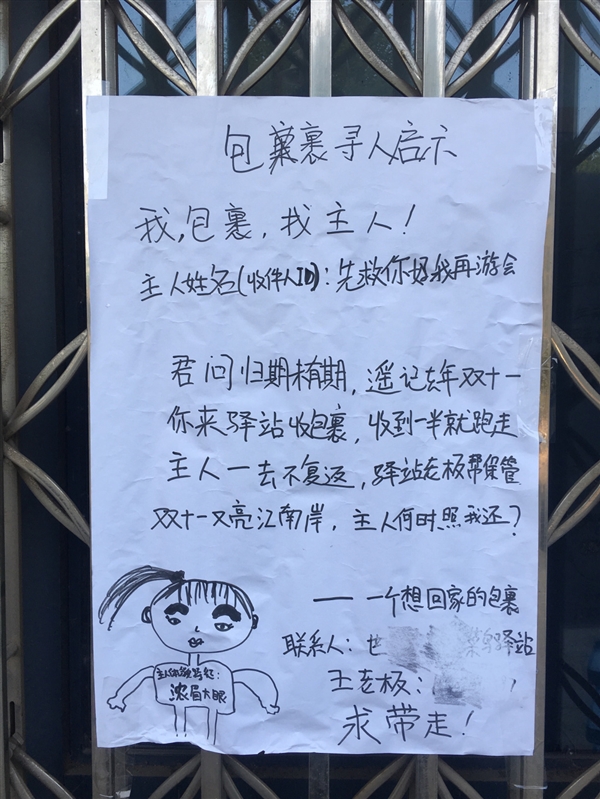 包裹寻人启示
我,包裹,找主人!
主人姓名(收件人ID):先救你妈我再游会
君问归期未有期,遥记去年双十一
你来驿站收包裹,收到一半就跑走
主人一去不复返,驿站老板帮保管
双十一又亮江南岸,主人何时照我还?
——一个想回家的包裹
联系人:世 驿站
王老板:
求带走!
主人外貌特征:
浓眉大眼